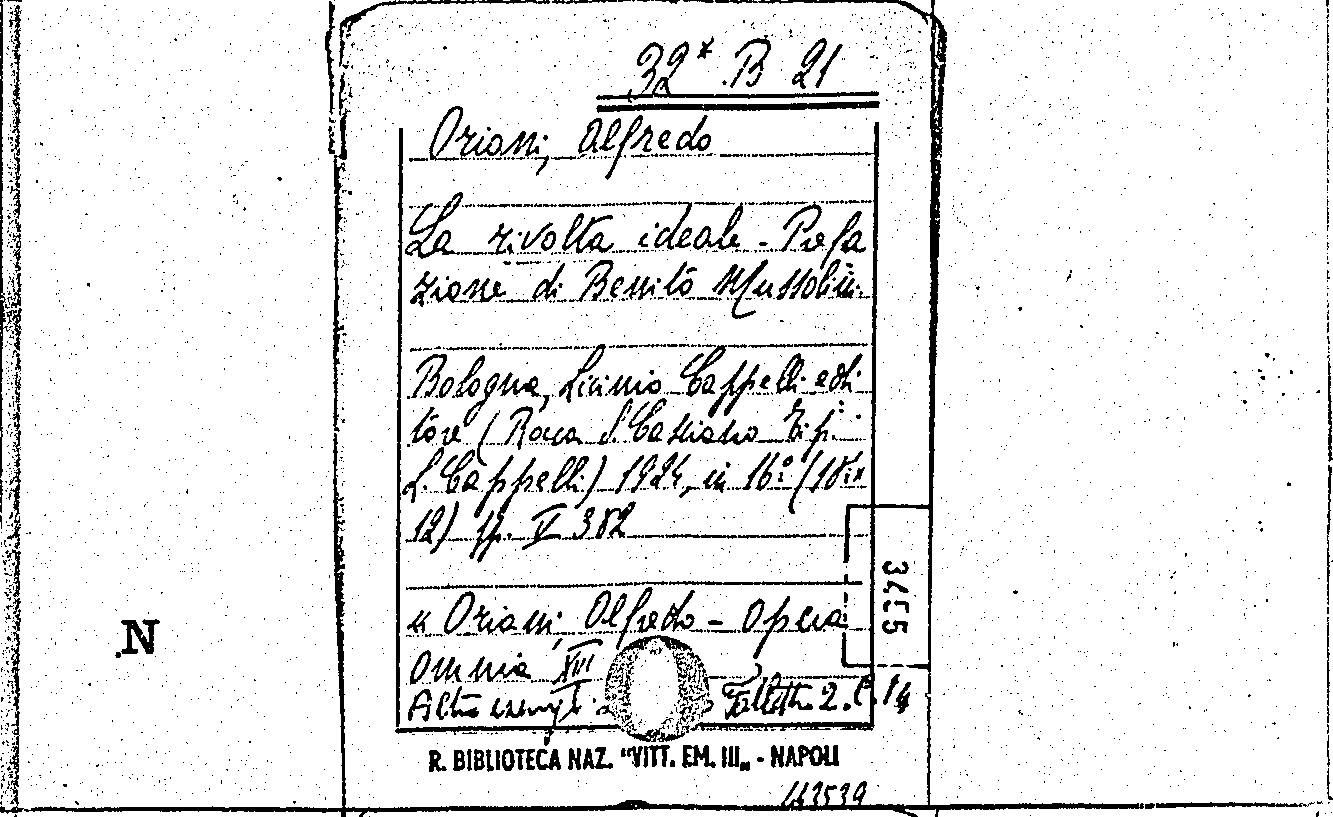 32* B 21
Oriani, Alfredo
La rivolta ideale - Prefa
zione di Benito Mussolini.
Bologna, Licinio Cappelli edi
tore (Rocca S. Casciano Tip.
L. Cappelli) 1924, in 16º (18 1/2 x
12) pp. V 382
" Oriani, Alfredo - Opera
Omnia XVI
Altro esempl. Falletti 2. C. 14
3455
N
R. BIBLIOTECA NAZ. "VITT. EM. III„ - NAPOLI